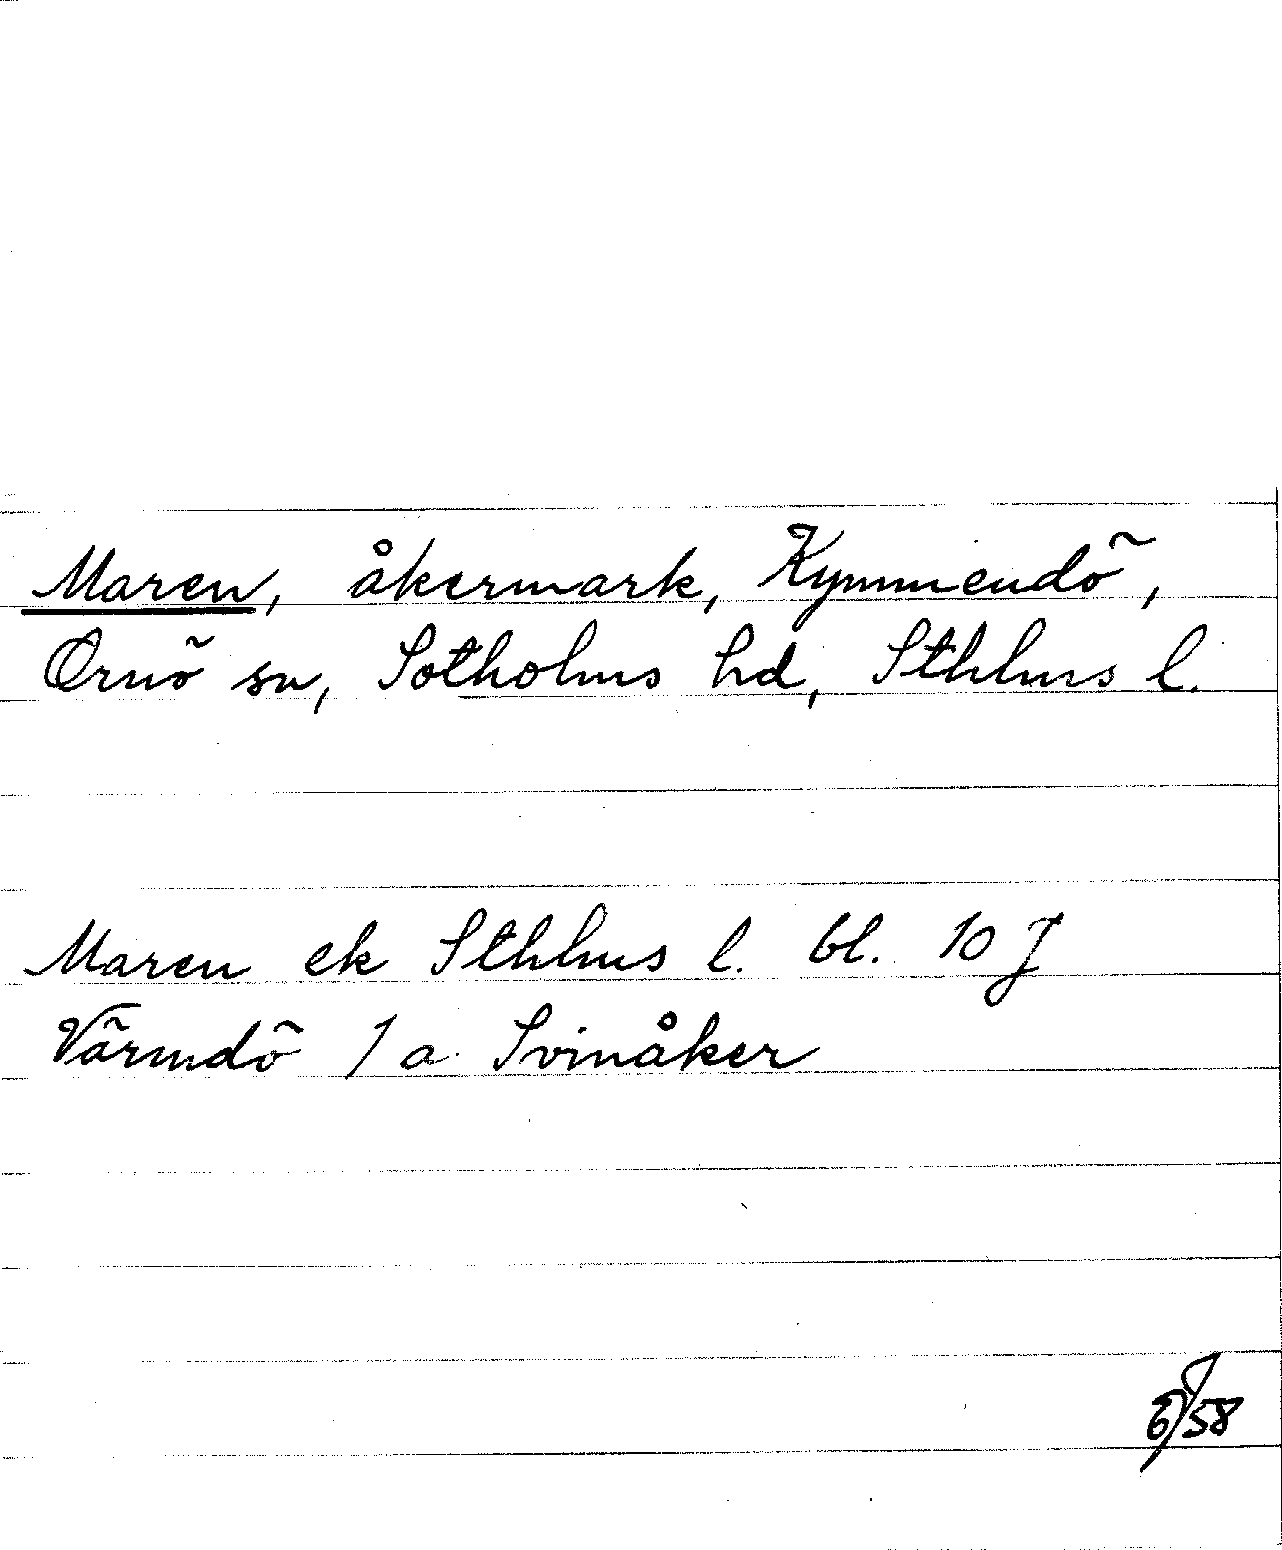 Maren, åkermark, Kymmendö,
Ornö sn, Sotholms hd, Sthlms l.
Maren ek Sthlms l. bl. 10 J
Värmdö / a. Svinåker
/58